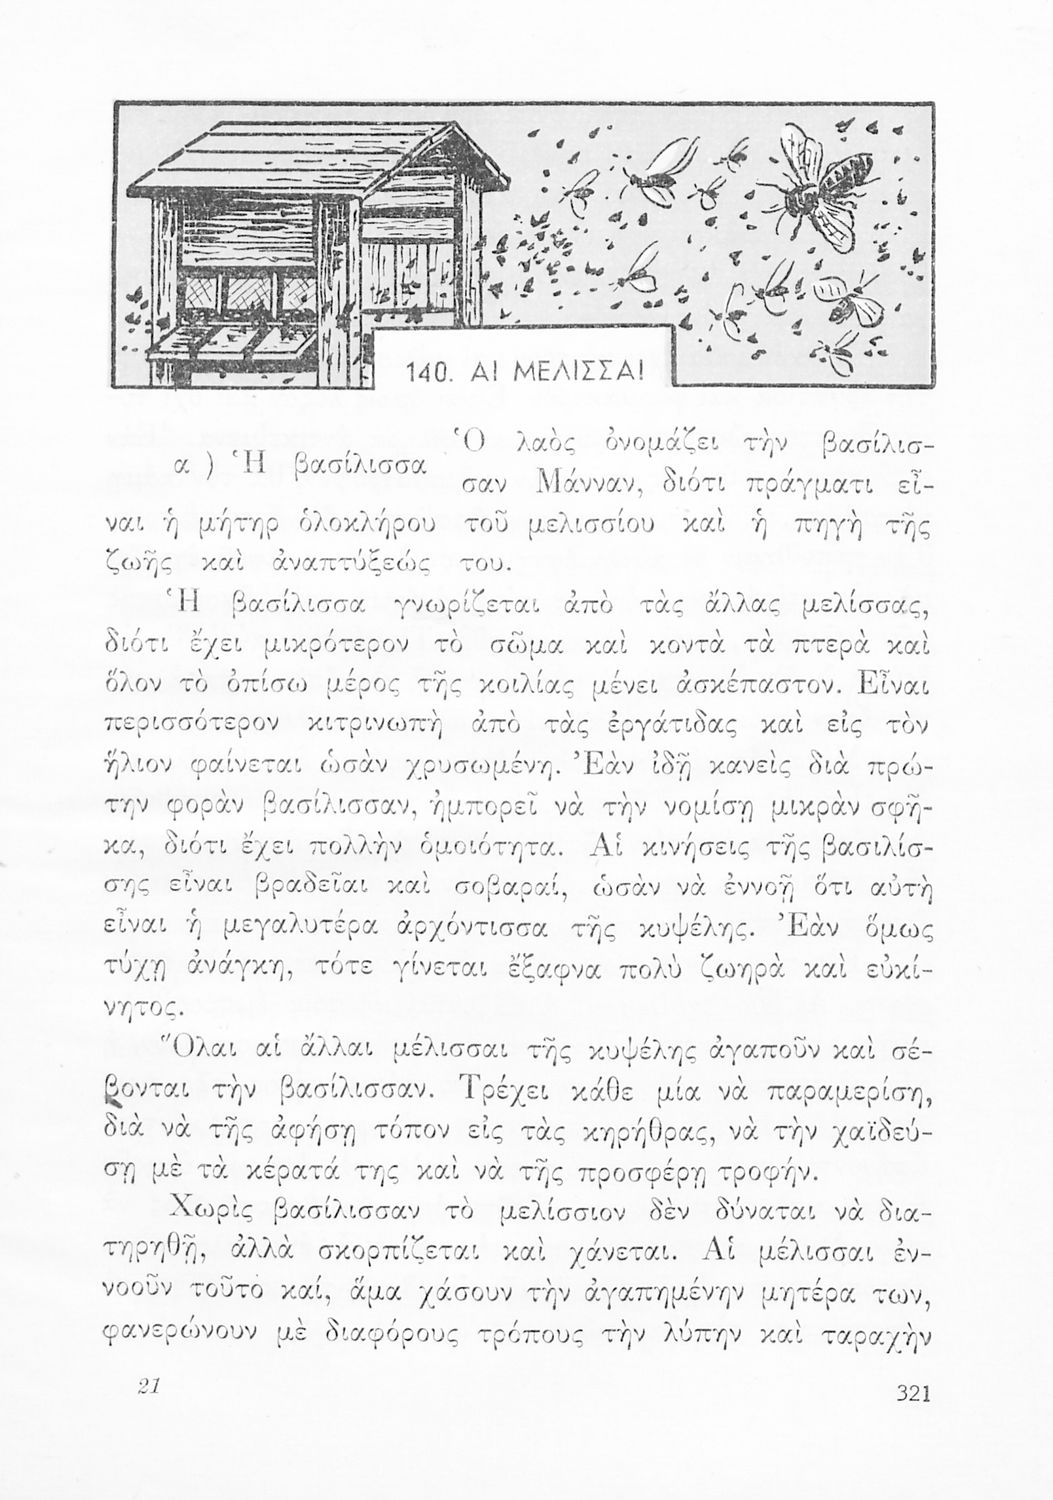 140. ΑΙ ΜΕΛΙΣΣΑΙ
α ) Ἡ βασίλισσα
Ὁ λαὸς ὀνομάζει τὴν βασίλισ-
σαν Μάνναν, διότι πράγματι εἶ-
ναι ἡ μήτηρ ὁλοκλήρου τοῦ μελισσίου καὶ ἡ πηγὴ τῆς
ζωῆς καὶ ἀναπτύξεώς του.
Ἡ βασίλισσα γνωρίζεται ἀπὸ τὰς ἄλλας μελίσσας,
διότι ἔχει μικρότερον τὸ σῶμα καὶ κοντὰ τὰ πτερὰ καὶ
ὅλον τὸ ὀπίσω μέρος τῆς κοιλίας μένει ἀσκέπαστον. Εἶναι
περισσότερον κιτρινωπὴ ἀπὸ τὰς ἐργάτιδας καὶ εἰς τὸν
ἥλιον φαίνεται ὡσὰν χρυσωμένη. Ἐὰν ἰδῇ κανεὶς διὰ πρώ-
την φορὰν βασίλισσαν, ἠμπορεῖ νὰ τὴν νομίσῃ μικρὰν σφῆ-
κα, διότι ἔχει πολλὴν ὁμοιότητα. Αἱ κινήσεις τῆς βασιλίσ-
σης εἶναι βραδεῖαι καὶ σοβαραί, ὡσὰν νὰ ἐννοῇ ὅτι αὐτὴ
εἶναι ἡ μεγαλυτέρα ἀρχόντισσα τῆς κυψέλης. Ἐὰν ὅμως
τύχῃ ἀνάγκη, τότε γίνεται ἔξαφνα πολὺ ζωηρὰ καὶ εὐκί-
νητος.
Ὅλαι αἱ ἄλλαι μέλισσαι τῆς κυψέλης ἀγαποῦν καὶ σέ-
βονται τὴν βασίλισσαν. Τρέχει κάθε μία νὰ παραμερίση,
διὰ νὰ τῆς ἀφήσῃ τόπον εἰς τὰς κηρήθρας, νὰ τὴν χαϊδεύ-
σῃ μὲ τὰ κέρατά της καὶ νὰ τῆς προσφέρῃ τροφήν.
Χωρὶς βασίλισσαν τὸ μελίσσιον δὲν δύναται νὰ δια-
τηρηθῇ, ἀλλὰ σκορπίζεται καὶ χάνεται. Αἱ μέλισσαι ἐν-
νοοῦν τοῦτο καί, ἅμα χάσουν τὴν ἀγαπημένην μητέρα των,
φανερώνουν μὲ διαφόρους τρόπους τὴν λύπην καὶ ταραχὴν
21
321